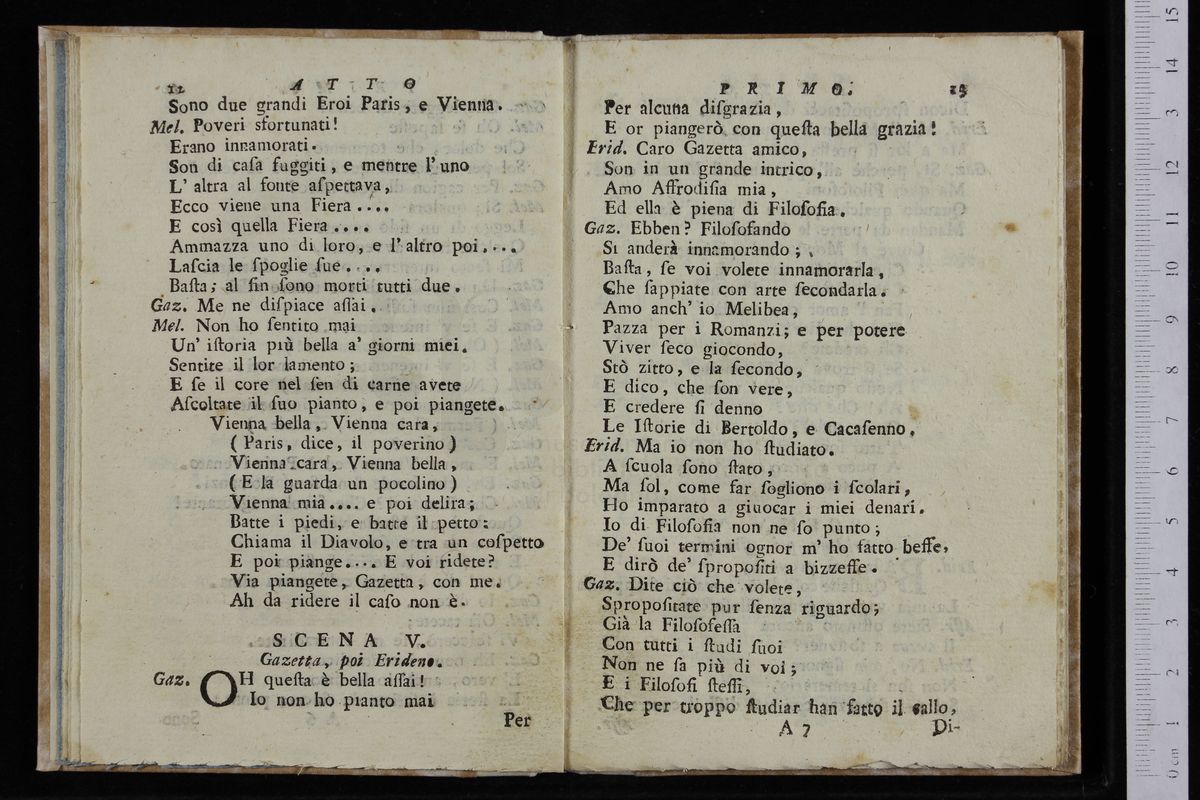 12 ATTO
Sono due grandi Eroi Paris, e Vienna.
Mel. Poveri sfortunati!
Erano innamorati.
Son di caſa fuggiti, e mentre l' uno
L' altra al fonte aſpettava,
Ecco viene una Fiera ....
E così quella Fiera ....
Ammazza uno di loro, e l' altro poi....
Laſcia le ſpoglie ſue....
Baſta; al fin ſono morti tutti due.
Gaz. Me ne diſpiace aſſai.
Mel. Non ho ſentito mai
Un' iſtoria più bella a' giorni miei.
Sentite il lor lamento;
E ſe il core nel ſen di carne avete
Aſcoltate il ſuo pianto, e poi piangete.
Vienna bella, Vienna cara,
( Paris, dice, il poverino )
Vienna cara, Vienna bella,
( E la guarda un pocolino )
Vienna mia.... e poi delira;
Batte i piedi, e batte il petto:
Chiama il Diavolo, e tra un coſpetto
E poi piange.... E voi ridete?
Via piangete, Gazetta, con me.
Ah da ridere il caſo non è.
SCENA V.
Gazetta, poi Erideno.
Gaz. OH queſta è bella aſſai!
Io non ho pianto mai
Per
PRIMO. 13
Per alcuna diſgrazia,
E or piangerò con queſta bella grazia!
Erid. Caro Gazetta amico,
Son in un grande intrico,
Amo Affrodiſia mia,
Ed ella è piena di Filoſofia.
Gaz. Ebben? Filoſofando
Si anderà innamorando;
Baſta, ſe voi volete innamorarla,
Che ſappiate con arte ſecondarla.
Amo anch' io Melibea,
Pazza per i Romanzi; e per potere
Viver ſeco giocondo,
Stò zitto, e la ſecondo,
E dico, che ſon vere,
E credere ſi denno
Le Iſtorie di Bertoldo, e Cacaſenno.
Erid. Ma io non ho ſtudiato.
A ſcuola ſono ſtato,
Ma ſol, come far ſogliono i ſcolari,
Ho imparato a giuocar i miei denari.
Io di Filoſofia non ne ſo punto;
De' ſuoi termini ognor m' ho fatto beffe,
E dirò de' ſpropoſiti a bizzeffe.
Gaz. Dite ciò che volete,
Spropoſitate pur ſenza riguardo;
Già la Filoſofeſſa
Con tutti i ſtudi ſuoi
Non ne ſa più di voi;
E i Filoſofi ſteſſi,
Che per troppo ſtudiar han fatto il callo,
A 7 Di-